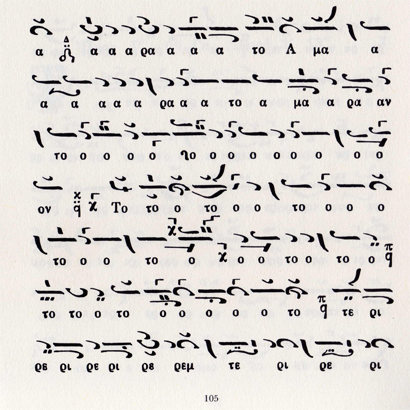 α α α α ρα α α α το Α μα α
α α α α α ρα α α το α μα α ρα αν
το ο ο ο ο το ο ο ο ο ο ο ο
ον Το το ο το ο ο το ο ο ο
το ο το ο ο το ο το ο
το το το ο ο ο ο ο το τε ρι
ρε ρι ρε ρι ρε ρεμ τε ρι ρε ρι
105